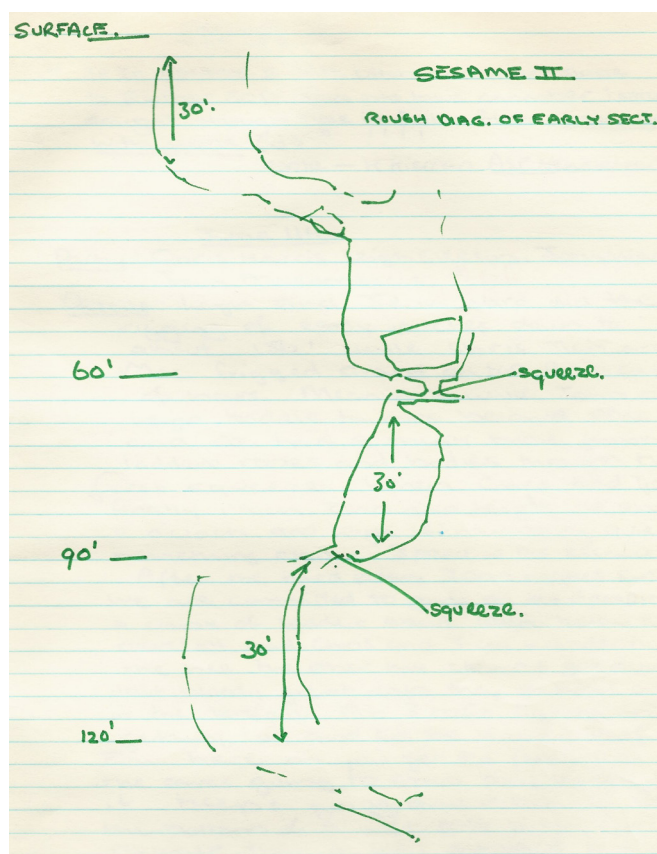 SURFACE.
SESAME II
30'.
ROUGH DIAG. OF EARLY SECT.
60'
squeeze.
30'
90'
squeeze.
30'
120'